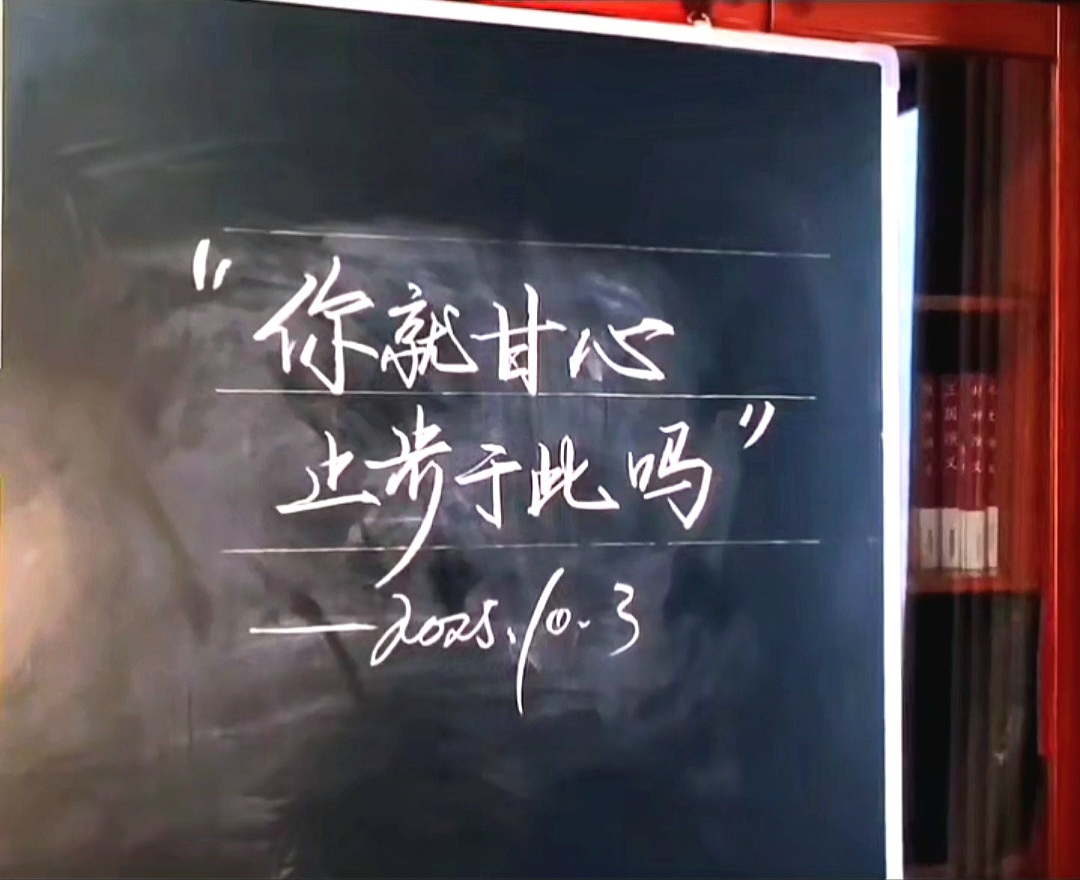 “你就甘心
止步于此吗”
——2025.10.3
三国演义